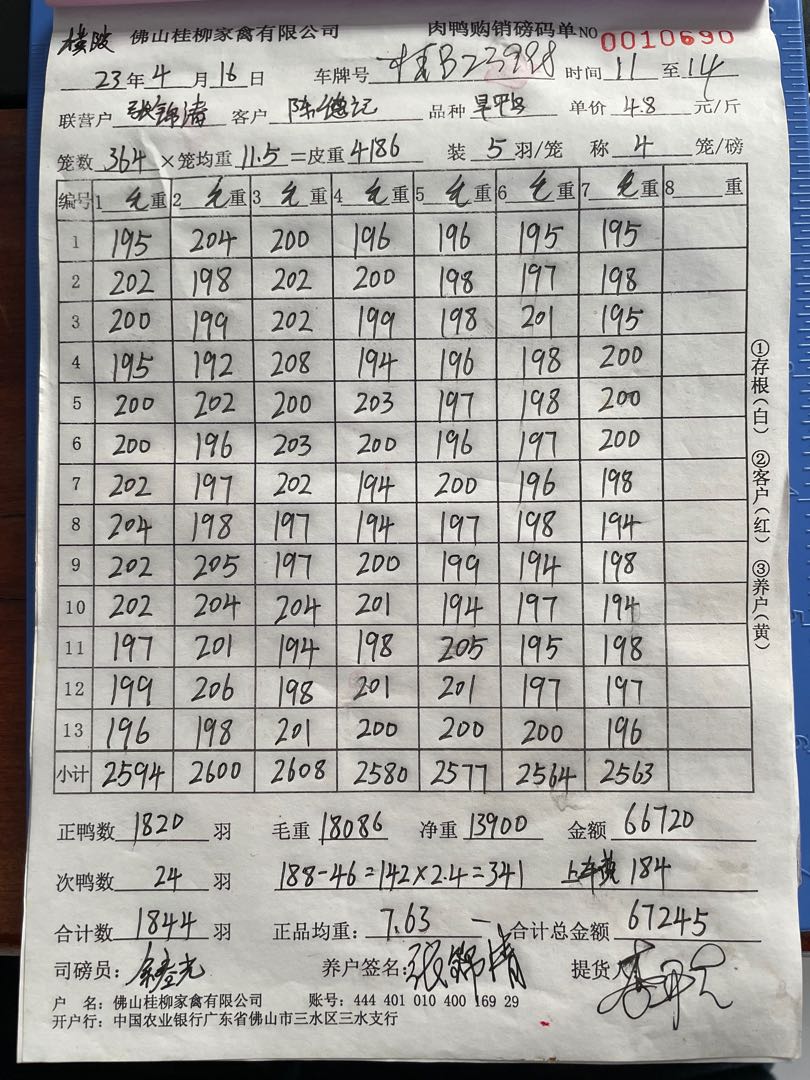 横陂 佛山桂柳家禽有限公司 肉鸭购销磅码单 NO 0010690
23年4月16日 车牌号 桂B23998 时间 11 至 14
联营户 张锦清 客户 陈德记 品种 单价 4.8 元/斤
笼数 364 ×笼均重 11.5 =皮重 4186 装 5 羽/笼 称 4 笼/磅
编号 1 毛重 2 毛重 3 毛重 4 毛重 5 毛重 6 毛重 7 毛重 8 重
1 195 204 200 196 196 195 195
2 202 198 202 200 198 197 198
3 200 199 202 199 198 201 195
4 195 192 208 194 196 198 200
5 200 202 200 203 197 198 200
6 200 196 203 200 196 197 200
7 202 197 202 194 200 196 198
8 204 198 197 194 197 198 194
9 202 205 197 200 199 194 198
10 202 204 204 201 194 197 194
11 197 201 194 198 205 195 198
12 199 206 198 201 201 197 197
13 196 198 201 200 200 200 196
小计 2594 2600 2608 2580 2577 2564 2563
①存根(白) ②客户(红) ③养户(黄)
正鸭数 1820 羽 毛重 18086 净重 13900 金额 66720
次鸭数 24 羽 188-46=142×2.4=341 上车费 184
合计数 1844 羽 正品均重: 7.63 一 合计总金额 67245
司磅员: 养户签名: 张锦清 提货人
户 名: 佛山桂柳家禽有限公司 账号: 444 401 010 400 169 29
开户行: 中国农业银行广东省佛山市三水区三水支行